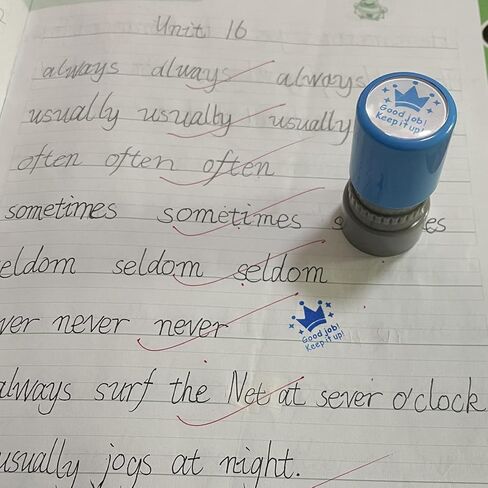 Unit 16
always always always
usually usually usually
often often often
sometimes sometimes
seldom seldom
never never
always surf the Net at sever o'clock
usually jogs at night.
Good job!
Keep it up!
Good job!
Keep it up!